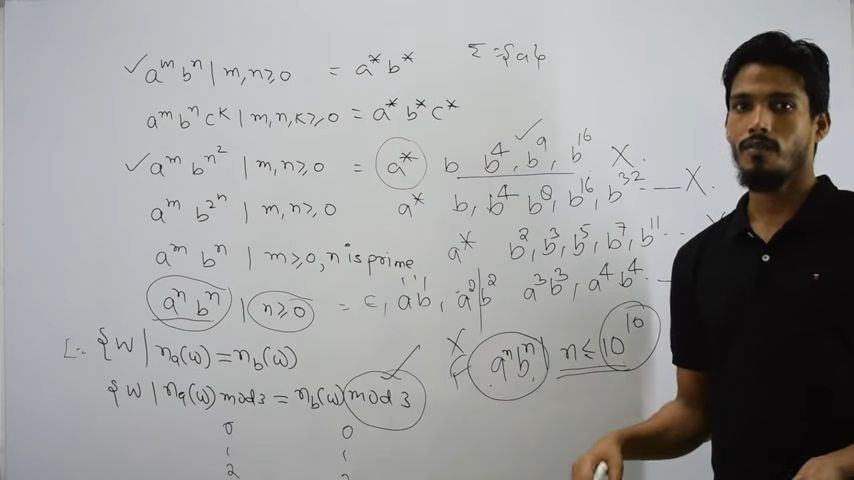 ✓ aᵐ bⁿ | m,n≥0 = a* b* Σ={a}
aᵐ bⁿ cᵏ | m,n,k≥0 = a* b* c*
✓ aᵐ bⁿ² | m,n≥0 = a* b b⁴, b⁹, b¹⁶ ✓ X.
aᵐ b²ⁿ | m,n≥0 a* b, b⁴ b⁸, b¹⁶, b³² — X.
aᵐ bⁿ | m≥0, n is prime a* b², b³, b⁵, b⁷, b¹¹ --
aⁿ bⁿ | n≥0 = ε, ab, a²b² a³b³, a⁴b⁴ . —
L:- {W | nₐ(ω) = n_b(ω) X aⁿbⁿ | n ≤ 10¹⁰
{W | nₐ(ω) mod 3 = n_b(ω) mod 3 ✓
0 0
1 1
2 2